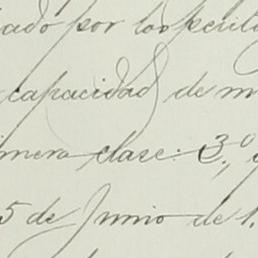 ado por los perito
capacidad de m
imera clase: 3º,
5 de Junio de 1.